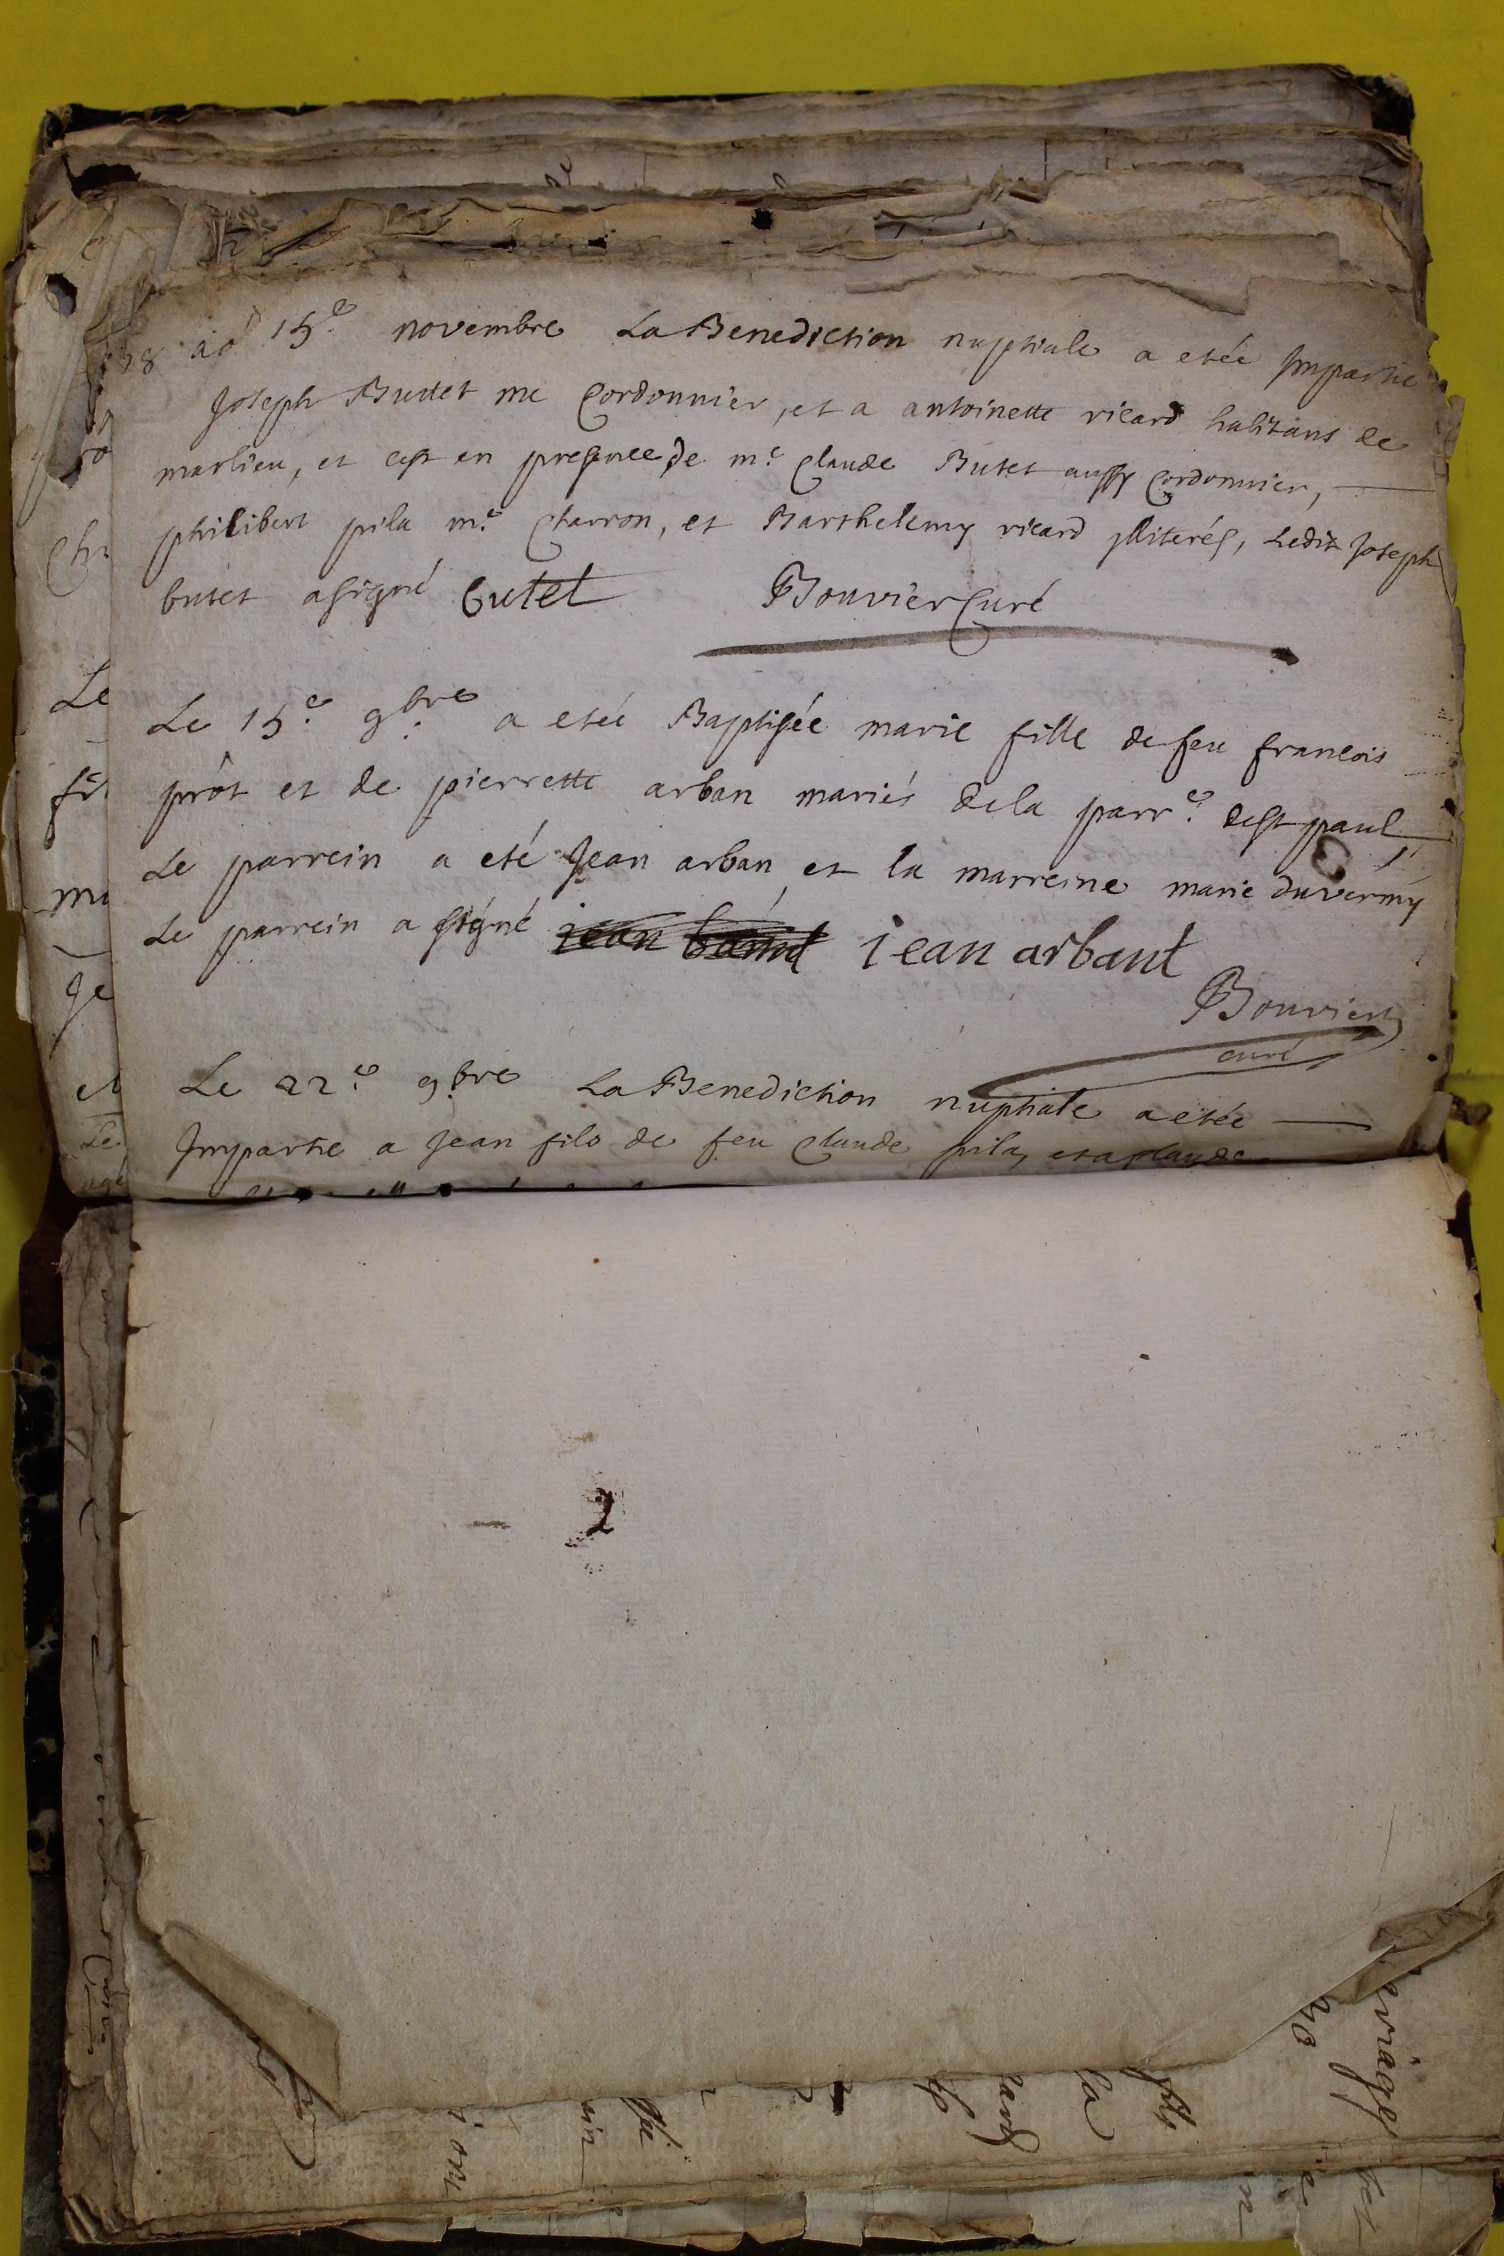 15.e novembre La Benediction nuptiale a etée Impartie
Joseph Buttet me Cordonnier, et a antoinette ricard habitans de
marlieu, et cest en presence de m.e Claude Butet aussy Cordonnier,
philibert pila m.e Charron, et Barthelemy ricard jlliterés, Ledit Joseph
butet a signé butet Bouvier Curé
Le 15.e 9.bre a etéé Baptisée marie fille de feu francois
prôt et de pierrette arban mariés de la parr.e de st paul
Le parrein a eté Jean arban et la marreine marie duvermy
Le parrein a signé jean jean arbant
Bouvier
curé
Le 22.e 9.bre La Benediction nuptiale a etée
Impartie a Jean fils de feu Claude pila, et a Claude